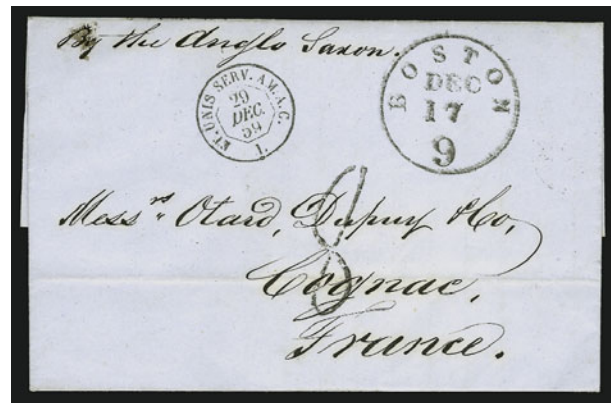 By the Anglo Saxon.
ET. UNIS SERV. AM. A.C.
29
DEC.
59
1.
BOSTON
DEC
17
9
8
Mess.rs Otard, Dupuy & Co,
Cognac,
France.